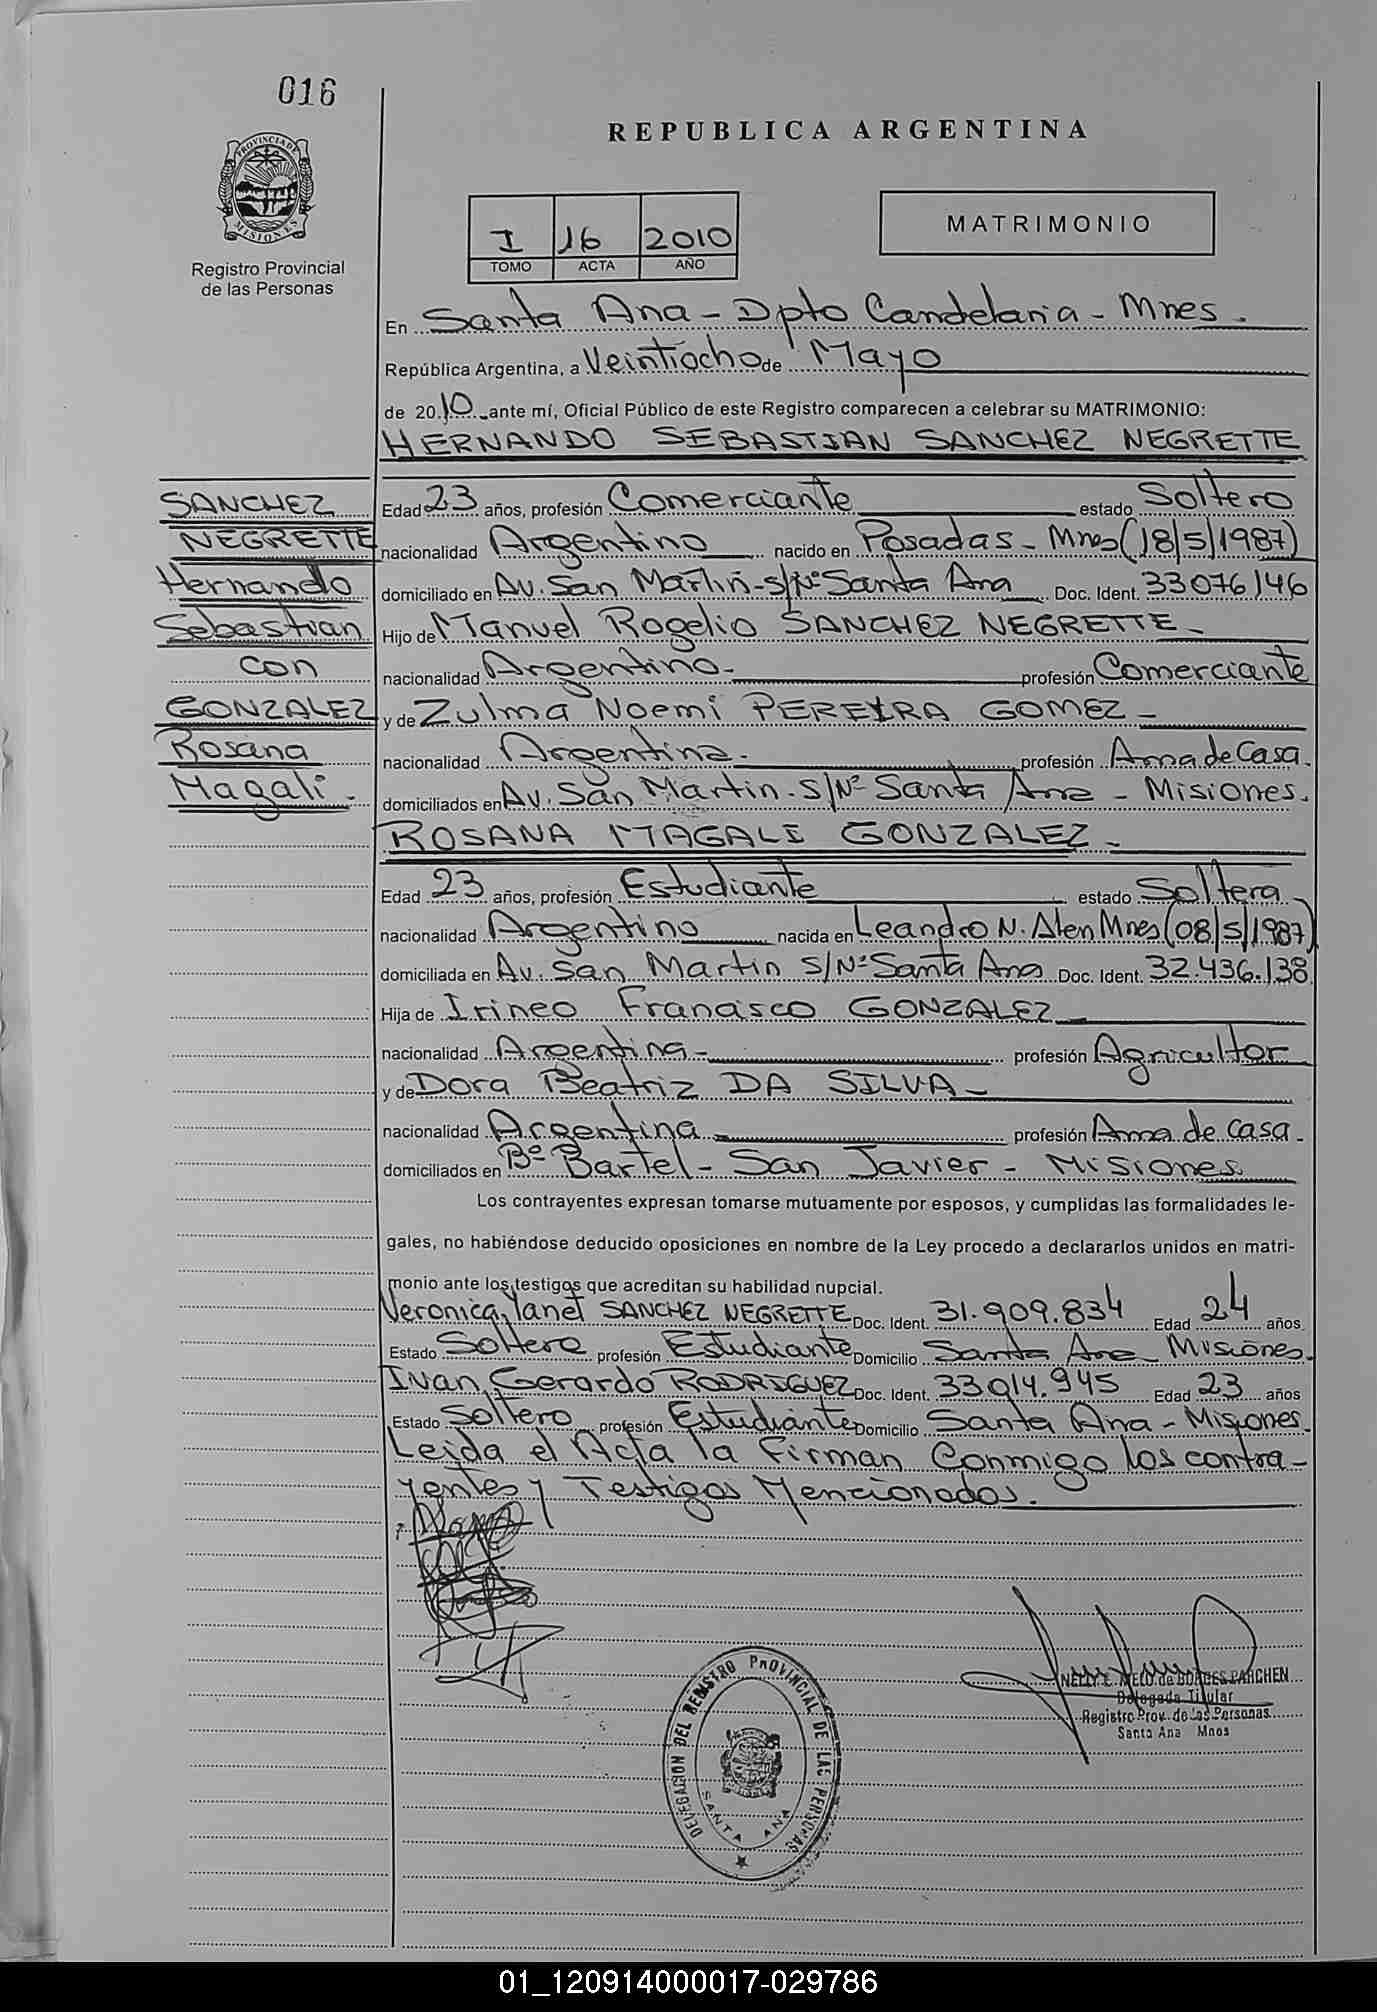 016
PROVINCIA DE
MISIONES
Registro Provincial
de las Personas
REPUBLICA ARGENTINA
I 16 2010
TOMO ACTA AÑO
MATRIMONIO
En Santa Ana - Dpto Candelaria - Mnes.
República Argentina, a Veintiocho de Mayo
de 2010 ante mí, Oficial Público de este Registro comparecen a celebrar su MATRIMONIO:
HERNANDO SEBASTIAN SANCHEZ NEGRETTE
SANCHEZ
NEGRETTE
Hernando
Sebastian
con
GONZALEZ
Rosana
Magali.
Edad 23 años, profesión Comerciante estado Soltero
nacionalidad Argentino nacido en Posadas - Mnes (18/5/1987)
domiciliado en Av. San Martin - S/Nº Santa Ana Doc. Ident. 33076146
Hijo de Manuel Rogelio SANCHEZ NEGRETTE -
nacionalidad Argentino - profesión Comerciante
y de Zulma Noemi PEREYRA GOMEZ -
nacionalidad Argentina - profesión Ama de Casa.
domiciliados en Av. San Martin - S/Nº Santa Ana - Misiones.
ROSANA MAGALI GONZALEZ -
Edad 23 años, profesión Estudiante estado Soltera
nacionalidad Argentino nacida en Leandro N. Alen Mnes (08/5/1987)
domiciliada en Av. San Martin S/Nº Santa Ana Doc. Ident. 32.436.138
Hija de Irineo Francisco GONZALEZ
nacionalidad Argentina - profesión Agricultor
y de Dora Beatriz DA SILVA -
nacionalidad Argentina profesión Ama de casa.
domiciliados en Bº Bartel - San Javier - Misiones
Los contrayentes expresan tomarse mutuamente por esposos, y cumplidas las formalidades le-
gales, no habiéndose deducido oposiciones en nombre de la Ley procedo a declararlos unidos en matri-
monio ante los testigos que acreditan su habilidad nupcial.
Veronica Yanet SANCHEZ NEGRETTE Doc. Ident. 31.909.834 Edad 24 años
Estado Soltera profesión Estudiante Domicilio Santa Ana Misiones.
Ivan Gerardo RODRIGUEZ Doc. Ident. 33014.945 Edad 23 años
Estado Soltero profesión Estudiante Domicilio Santa Ana - Misiones.
Leida el Acta la Firman Conmigo los contra-
yentes y Testigos Mencionados.
NELLY E. MELO de BORGES PARCHEN
Delegada Titular
Registro Prov. de las Personas
Santa Ana Mnes
DELEGACION DEL REGISTRO PROVINCIAL DE LAS PERSONAS
SANTA ANA
01_120914000017-029786